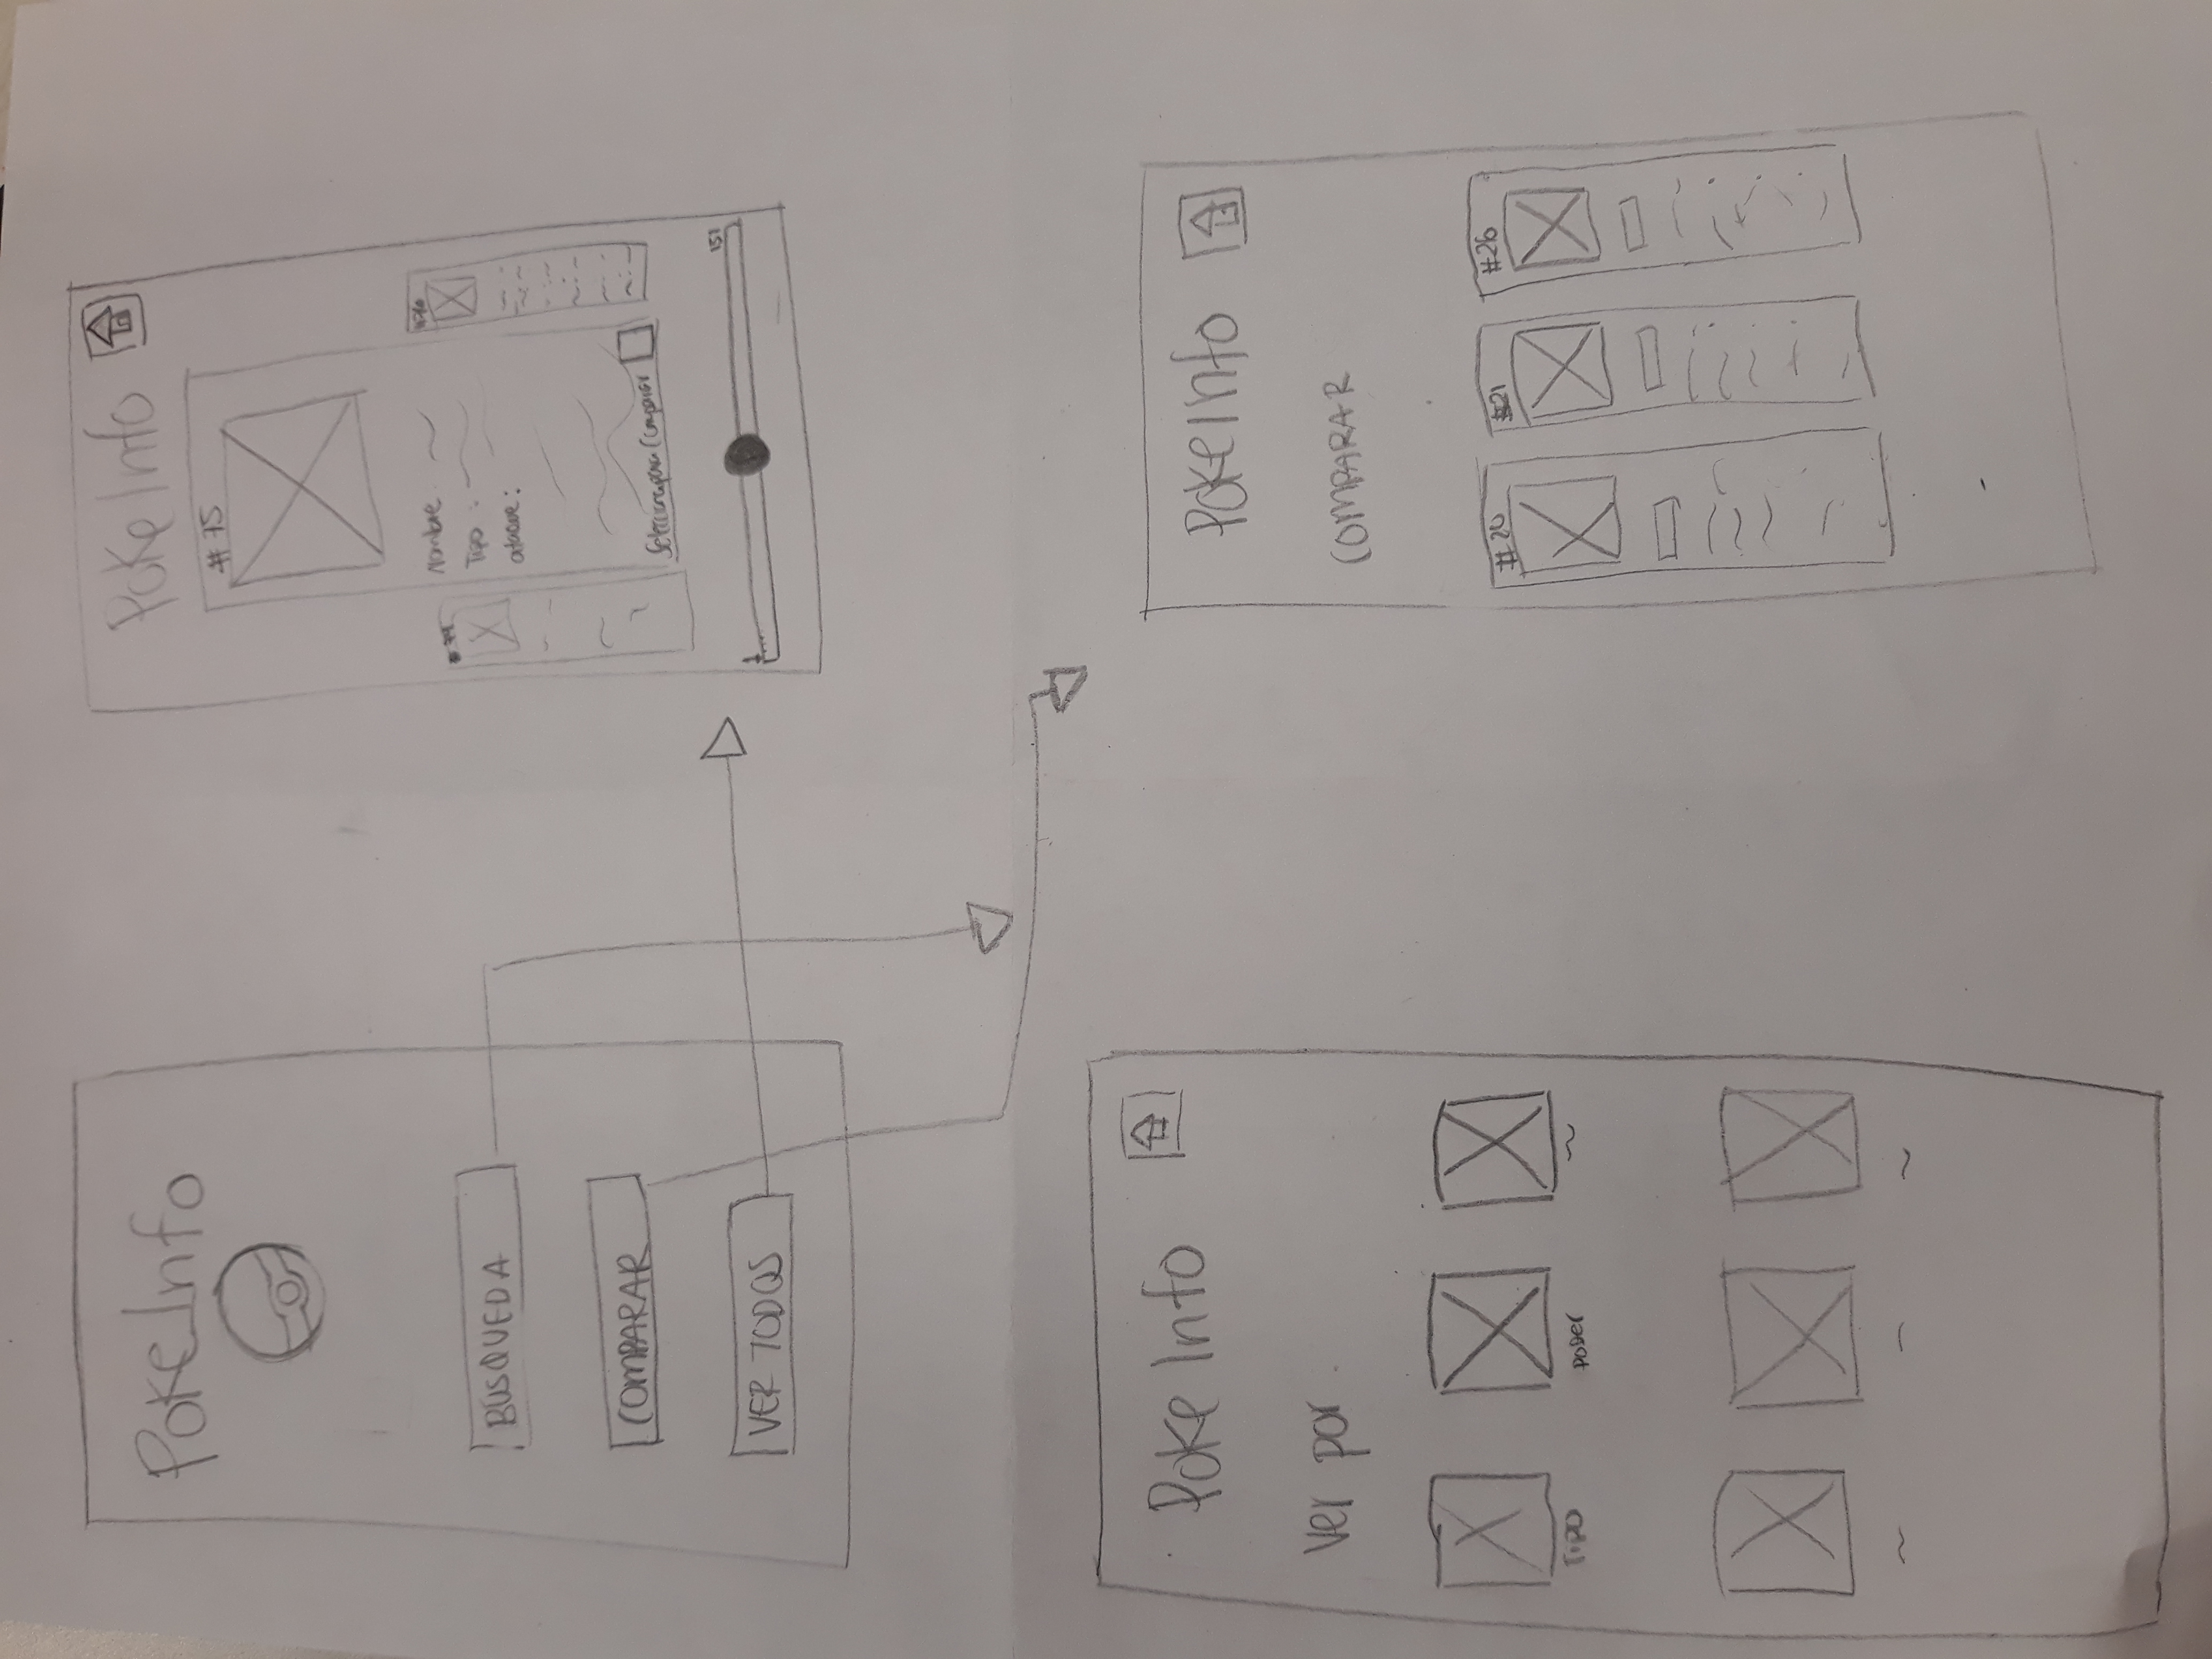 PokeInfo
BUSQUEDA
COMPARAR
VER TODOS
Poke Info
# 75
Nombre
Tipo :
ataque:
Selecciona para Comparar
# 74
#76
1
151
Poke Info
Ver por
Tipo
poder
PokeInfo
COMPARAR
#20
#21
#26